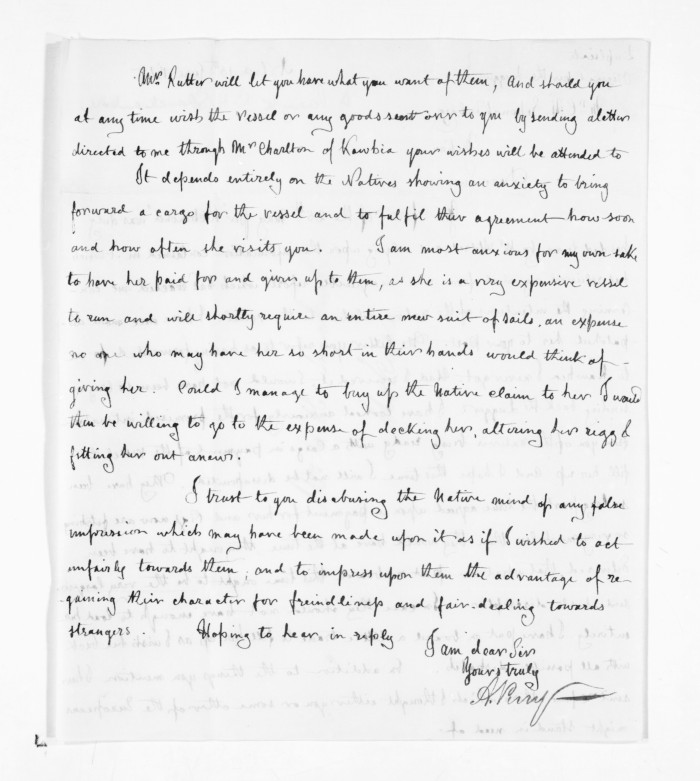 Mr. Rutter will let you have what you want of them, and should you
at any time wish the vessel or any goods sent over to you by sending a letter
directed to me through Mr. Charlton of Kawhia your wishes will be attended to
It depends entirely on the Natives showing an anxiety to bring
forward a cargo for the vessel and to fulfil their agreement how soon
and how often she visits you. I am most anxious for my own sake
to have her paid for and given up to them, as she is a very expensive vessel
to run and will shortly require an entire new suit of sails, an expense
no one who may have her so short in their hands would think of
giving her. Could I manage to buy up the Native claim to her I would
then be willing to go to the expense of decking her, altering her rigg &
fitting her out anew.
I trust to you disabusing the Native mind of any false
impression which may have been made upon it as if I wished to act
unfairly towards them, and to impress upon them the advantage of re-
gaining their character for freindliness and fair-dealing towards
strangers. Hoping to hear in reply
I am dear Sir
Yours truly
A.